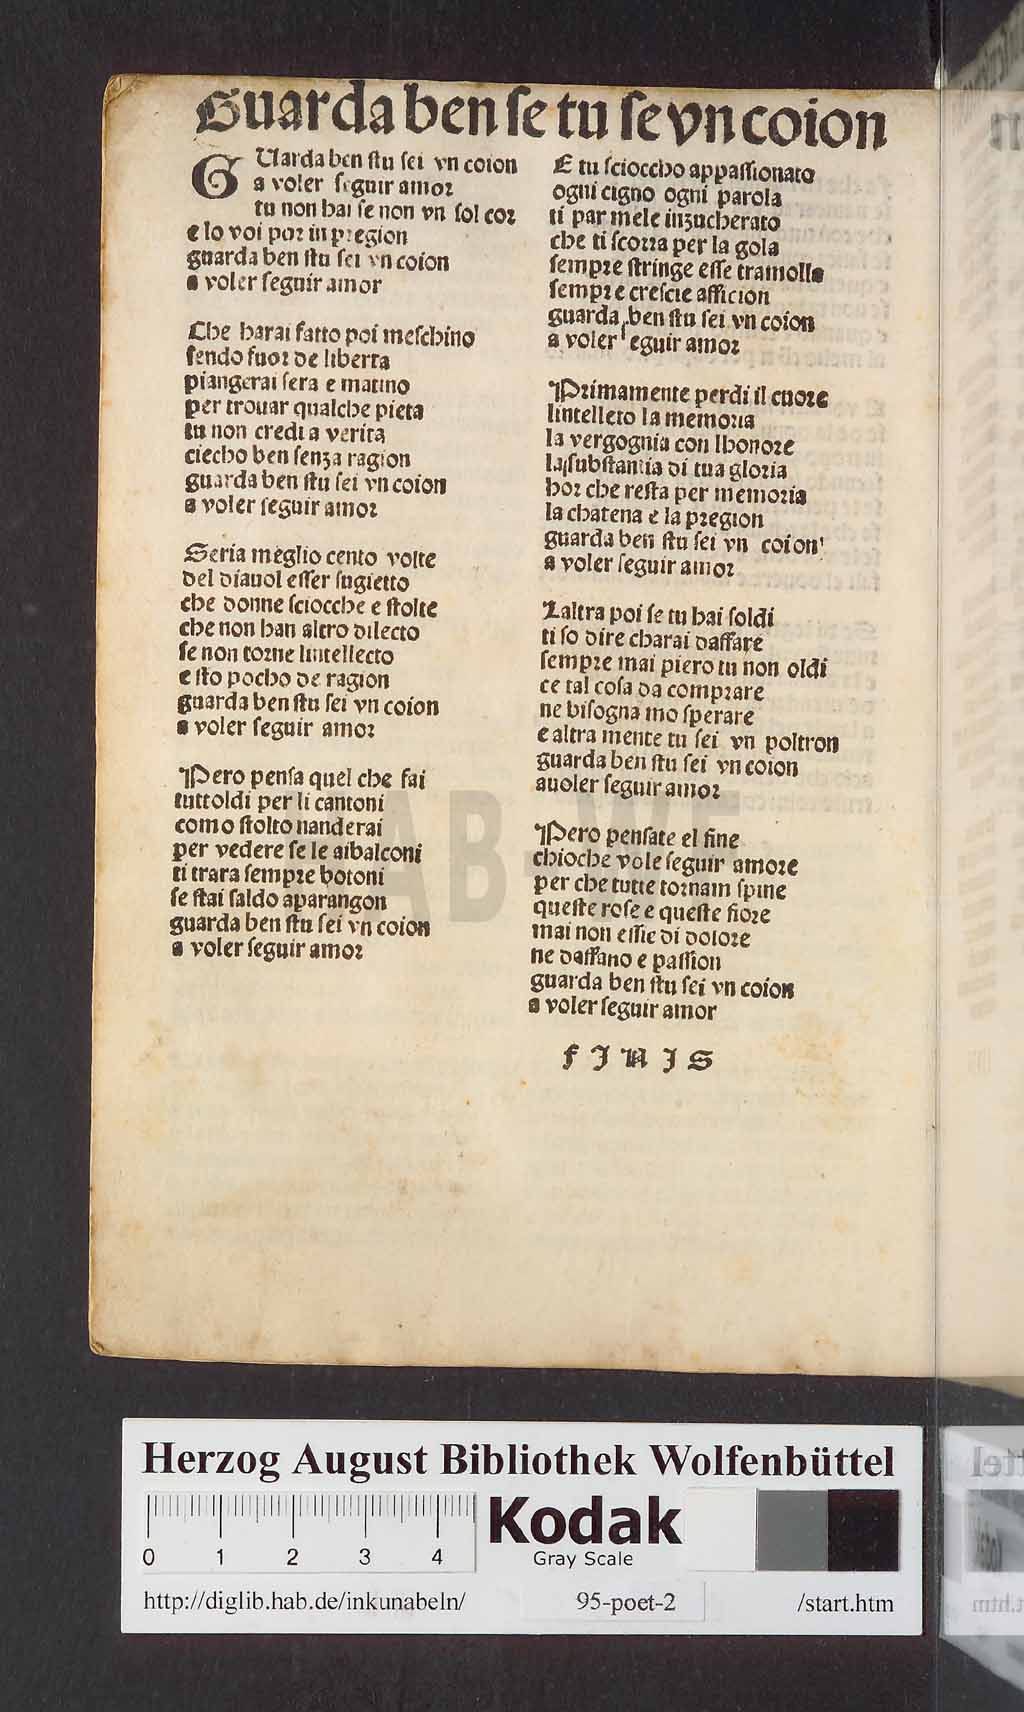 Guarda ben ſe tu ſe vn coion
GUarda ben ſtu ſei vn coion
a voler ſeguir amor
tu non hai ſe non vn ſol cor
e lo voi por in pregion
guarda ben ſtu ſei vn coion
a voler ſeguir amor
Che harai fatto poi meſchino
ſendo fuor de liberta
piangerai ſera e matino
per trouar qualche pieta
tu non credi a verita
ciecho ben ſenza ragion
guarda ben ſtu ſei vn coion
a voler ſeguir amor
Seria meglio cento volte
del diauol eſſer ſugietto
che donne ſciocche e ſtolte
che non han altro dilecto
ſe non torne lintellecto
e ſto pocho de ragion
guarda ben ſtu ſei vn coion
a voler ſeguir amor
Pero penſa quel che fai
tuttoldi per li cantoni
como ſtolto nanderai
per vedere ſe le aibalconi
ti trara ſempre botoni
ſe ſtai ſaldo aparangon
guarda ben ſtu ſei vn coion
a voler ſeguir amor
E tu ſcioccho appaſſionato
ogni cigno ogni parola
ti par mele inzucherato
che ti ſcorra per la gola
ſempre ſtringe eſſe tramolla
ſempre creſcie afficion
guarda ben ſtu ſei vn coion
a voler ſeguir amor
Primamente perdi il cuore
lintelleto la memoria
la vergognia con lhonore
la ſubſtantia di tua gloria
hor che reſta per memoria
la chatena e la pregion
guarda ben ſtu ſei vn coion
a voler ſeguir amor
Laltra poi ſe tu hai ſoldi
ti ſo dire charai daffare
ſempre mai piero tu non oldi
ce tal coſa da comprare
ne biſogna mo ſperare
e altra mente tu ſei vn poltron
guarda ben ſtu ſei vn coion
auoler ſeguir amor
Pero penſate el fine
chioche vole ſeguir amore
per che tutte tornam ſpine
queſte roſe e queſte fiore
mai non eſſie di dolore
ne daffano e paſſion
guarda ben ſtu ſei vn coion
a voler ſeguir amor
FINIS
HAB-WF
Herzog August Bibliothek Wolfenbüttel
0 1 2 3 4
Kodak
Gray Scale
http://diglib.hab.de/inkunabeln/ 95-poet-2 /start.htm